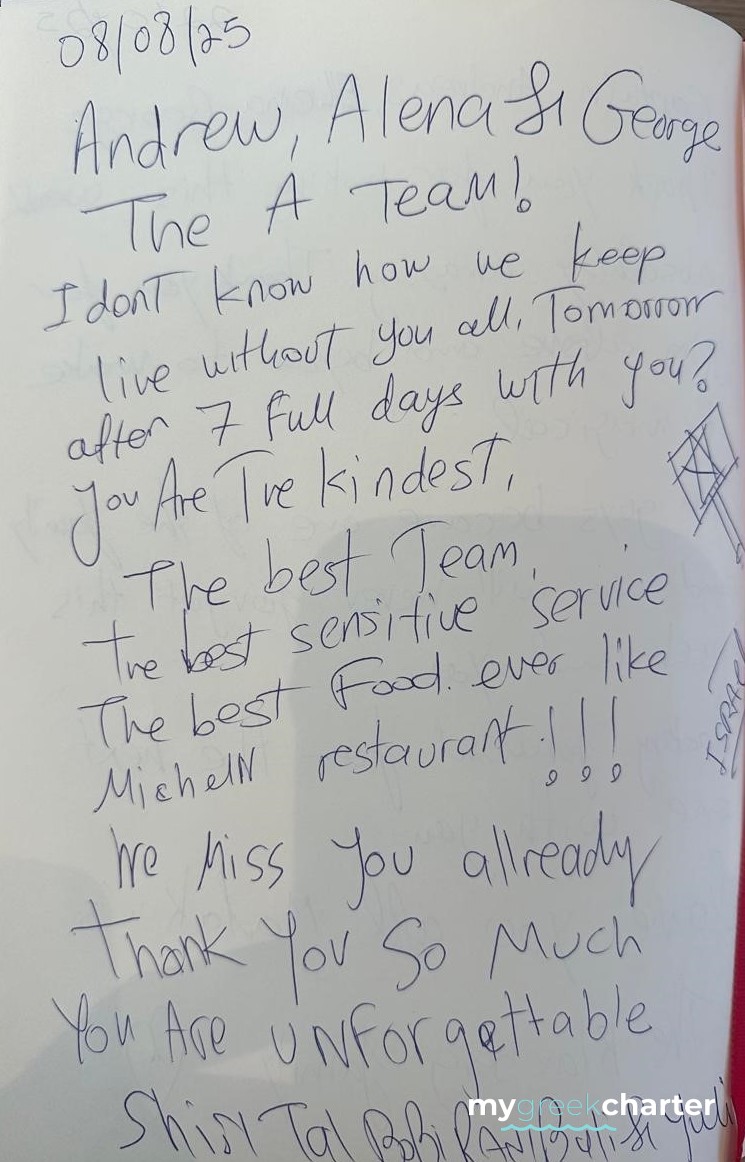 08/08/25
Andrew, Alena & George
The A Team!
I dont know how we keep
live without you all, Tomorrow
after 7 full days with you?
you Are The kindest,
The best Team,
the best sensitive service
The best Food. ever like
MichelN restaurant!!!
We Miss you allready
Thank You So Much
You Are UNforgettable
Shiry Tal
mygreekcharter
ISRAEL